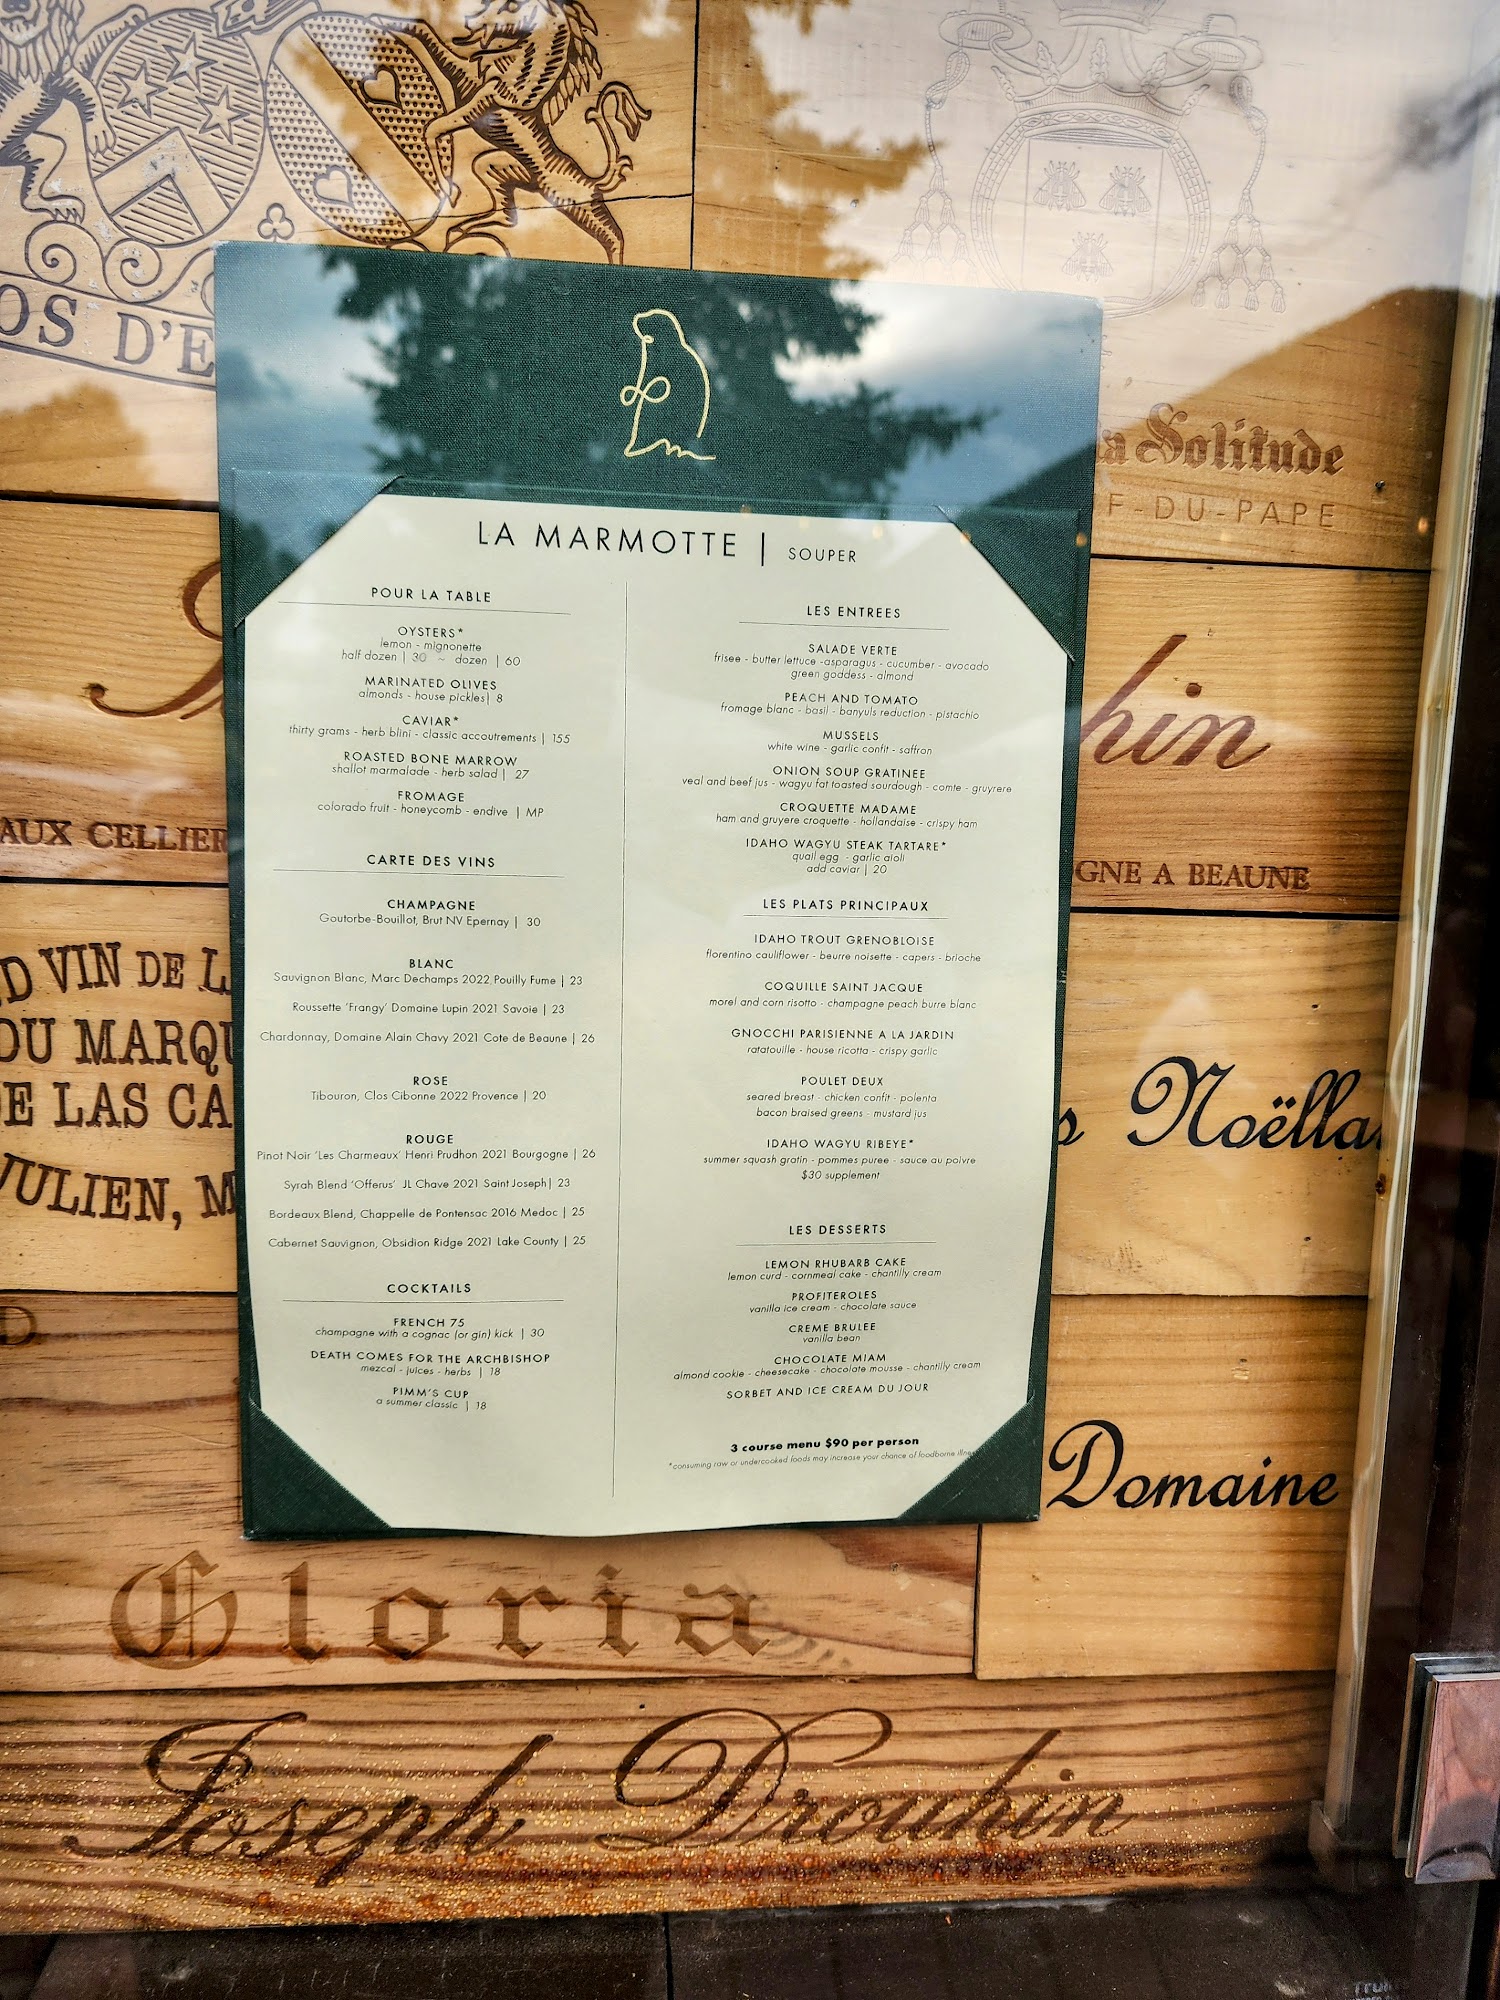 OS D'E
La Solitude
F-DU-PAPE
hin
AUX CELLIER
GNE A BEAUNE
D VIN DE L
DU MARQU
DE LAS CA
JULIEN, M
Noëlla
Domaine
Gloria
Joseph Drouhin
LA MARMOTTE | SOUPER
POUR LA TABLE
OYSTERS*
lemon - mignonette
half dozen | 30 ~ dozen | 60
MARINATED OLIVES
almonds - house pickles| 8
CAVIAR*
thirty grams - herb blini - classic accoutrements | 155
ROASTED BONE MARROW
shallot marmalade - herb salad | 27
FROMAGE
colorado fruit - honeycomb - endive | MP
CARTE DES VINS
CHAMPAGNE
Goutorbe-Bouillot, Brut NV Epernay | 30
BLANC
Sauvignon Blanc, Marc Dechamps 2022 Pouilly Fume | 23
Roussette 'Frangy' Domaine Lupin 2021 Savoie | 23
Chardonnay, Domaine Alain Chavy 2021 Cote de Beaune | 26
ROSE
Tibouron, Clos Cibonne 2022 Provence | 20
ROUGE
Pinot Noir 'Les Charmeaux' Henri Prudhon 2021 Bourgogne | 26
Syrah Blend 'Offerus' JL Chave 2021 Saint Joseph| 23
Bordeaux Blend, Chappelle de Pontensac 2016 Medoc | 25
Cabernet Sauvignon, Obsidion Ridge 2021 Lake County | 25
COCKTAILS
FRENCH 75
champagne with a cognac (or gin) kick | 30
DEATH COMES FOR THE ARCHBISHOP
mezcal - juices - herbs | 18
PIMM'S CUP
a summer classic | 18
LES ENTREES
SALADE VERTE
frisee - butter lettuce -asparagus - cucumber - avocado
green goddess - almond
PEACH AND TOMATO
fromage blanc - basil - banyuls reduction - pistachio
MUSSELS
white wine - garlic confit - saffron
ONION SOUP GRATINEE
veal and beef jus - wagyu fat toasted sourdough - comte - gruyere
CROQUETTE MADAME
ham and gruyere croquette - hollandaise - crispy ham
IDAHO WAGYU STEAK TARTARE*
quail egg - garlic aioli
add caviar | 20
LES PLATS PRINCIPAUX
IDAHO TROUT GRENOBLOISE
florentino cauliflower - beurre noisette - capers - brioche
COQUILLE SAINT JACQUE
morel and corn risotto - champagne peach burre blanc
GNOCCHI PARISIENNE A LA JARDIN
ratatouille - house ricotta - crispy garlic
POULET DEUX
seared breast - chicken confit - polenta
bacon braised greens - mustard jus
IDAHO WAGYU RIBEYE*
summer squash gratin - pommes puree - sauce au poivre
$30 supplement
LES DESSERTS
LEMON RHUBARB CAKE
lemon curd - cornmeal cake - chantilly cream
PROFITEROLES
vanilla ice cream - chocolate sauce
CREME BRULEE
vanilla bean
CHOCOLATE MIAM
almond cookie - cheesecake - chocolate mousse - chantilly cream
SORBET AND ICE CREAM DU JOUR
3 course menu $90 per person
*consuming raw or undercooked foods may increase your chance of foodborne illnes